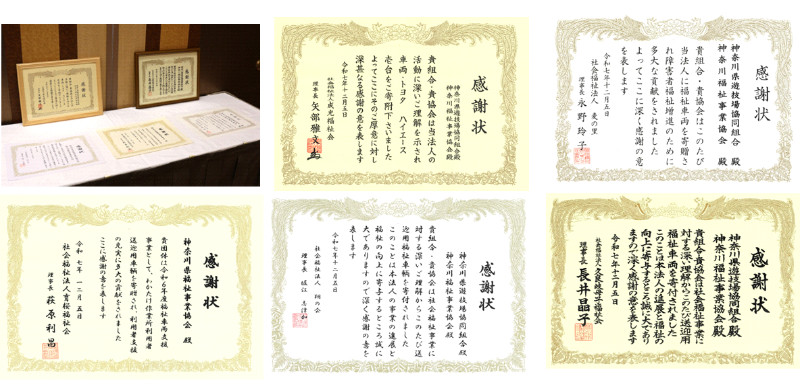 感謝状
神奈川県遊技場協同組合殿
神奈川福祉事業協会殿
貴組合・貴協会は当法人の
活動に深いご理解を示され
車両・トヨタ ハイエース
壱台をご寄附下さいました
よってここにそのご厚意に対し
深甚なる感謝の意を表します
令和七年十二月五日
社会福祉法人成光福祉会
理事長 矢部雅文
感謝状
神奈川県遊技場協同組合 殿
神奈川福祉事業協会 殿
貴組合・貴協会はこのたび
当法人に福祉車両を寄贈さ
れ障害者福祉増進のために
多大な貢献をされました
よってここに深く感謝の意
を表します
令和七年十二月五日
社会福祉法人 麦の里
理事長 永野玲子
感謝状
神奈川県福祉事業協会 殿
貴団体は令和七年度福祉車両支援
事業として、わかたけ作業所利用者
送迎用車輌を寄贈され、利用者支援
の充実に多大の貢献をされました
ここに感謝の意を表します
令和七年十二月五日
社会福祉法人育桜福祉会
理事長 萩原利昌
感謝状
神奈川県遊技場協同組合殿
神奈川福祉事業協会殿
貴組合・貴協会は社会福祉事業に
対する深いご理解からこのたび送
迎用福祉車輌を寄付されました
このことは本法人の事業の進展と
福祉の向上に寄与するところ誠に
大でありますので深く感謝の意を
表します
令和七年十二月五日
社会福祉法人 翔の会
理事長
感謝状
神奈川県遊技場協同組合殿
神奈川福祉事業協会殿
貴組合・貴協会は社会福祉事業に
対する深い理解からこのたび送迎用
福祉車両を寄付されました
このことは本法人の進展と福祉の
向上に寄与するところ誠に大であり
ますので深く感謝の意を表します
令和七年十二月五日
社会福祉法人久良岐母子福祉会
理事長 長井晶子